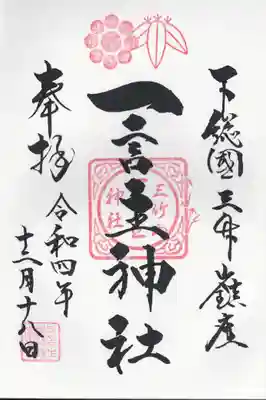 下総國三竹山鎮座
一言主神社
奉拝
令和四年
十二月十八日
三竹
神社